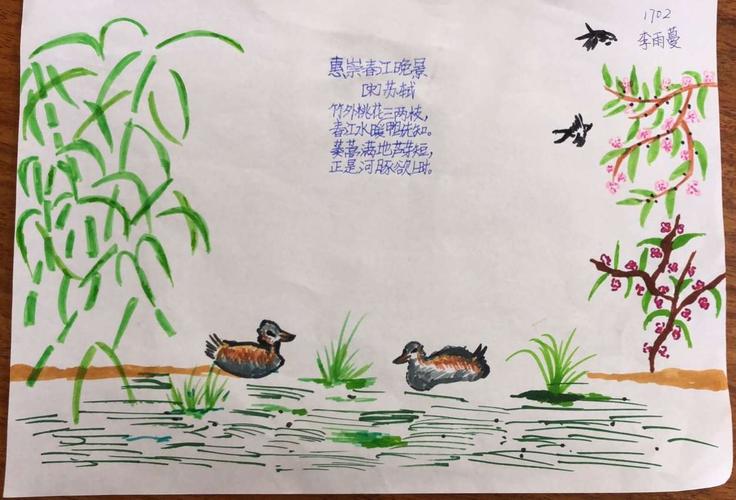 1702
李雨蔓
惠崇春江晚景
[宋]苏轼
竹外桃花三两枝,
春江水暖鸭先知。
蒌蒿满地芦芽短,
正是河豚欲上时。